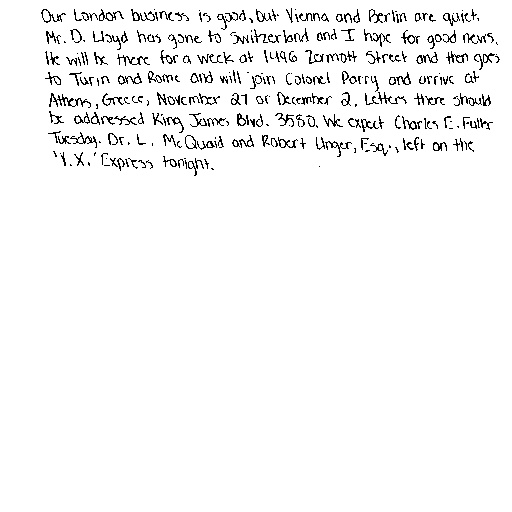 Our London business is good, but Vienna and Berlin are quiet.
Mr. D. Lloyd has gone to Switzerland and I hope for good news.
He will be there for a week at 1496 Zermott Street and then goes
to Turin and Rome and will join Colonel Parry and arrive at
Athens, Greece, November 27 or December 2. Letters there should
be addressed King James Blvd. 3580. We expect Charles E. Fuller
Tuesday. Dr. L. McQuaid and Robert Unger, Esq., left on the
'Y.X.' Express tonight.